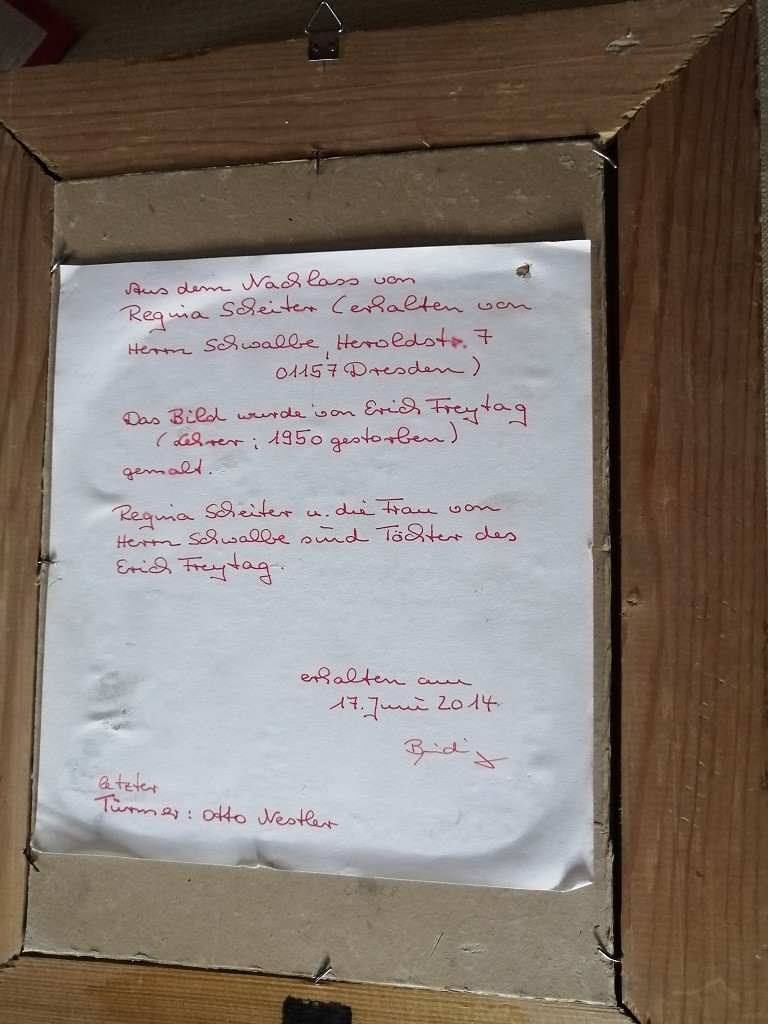 Aus dem Nachlass von
Regina Scheiter (erhalten von
Herrn Schwalbe, Heroldstr. 7
01157 Dresden)
Das Bild wurde von Erich Freytag
(Lehrer; 1950 gestorben)
gemalt.
Regina Scheiter u. die Frau von
Herrn Schwalbe sind Töchter des
Erich Freytag.
erhalten am
17. Juni 2014
letzter
Türmer: Otto Nestler